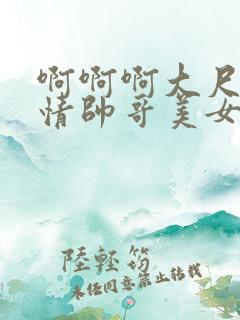 啊啊啊大尺
情帅哥美女
陸軽筠
未经同意禁止转载